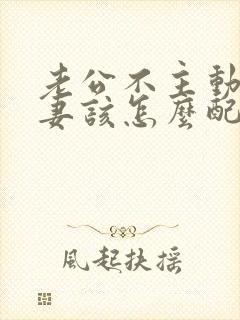 老公不主動
妻該怎麼配
風起扶搖